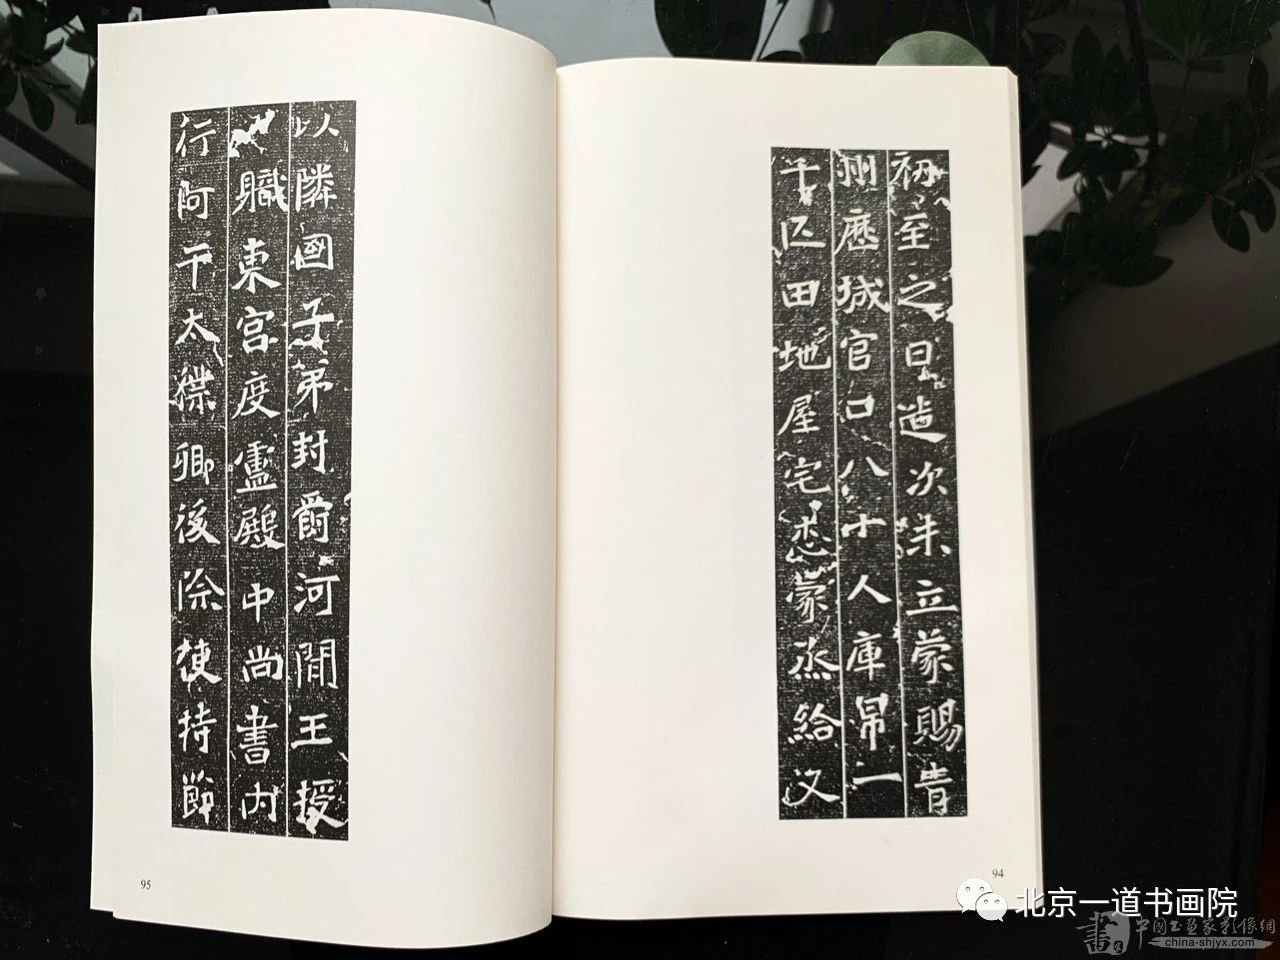 初至之日造次未立蒙賜青
州歷城官口八十人庫帛一
千匹田地屋宅悉蒙烝給又
94
以隣國子弟封爵河間王授
職東宮度盧殿中尚書内
行阿干太僕卿後除使持節
95
北京一道书画院
中国书画家影像網
china-shjyx.com